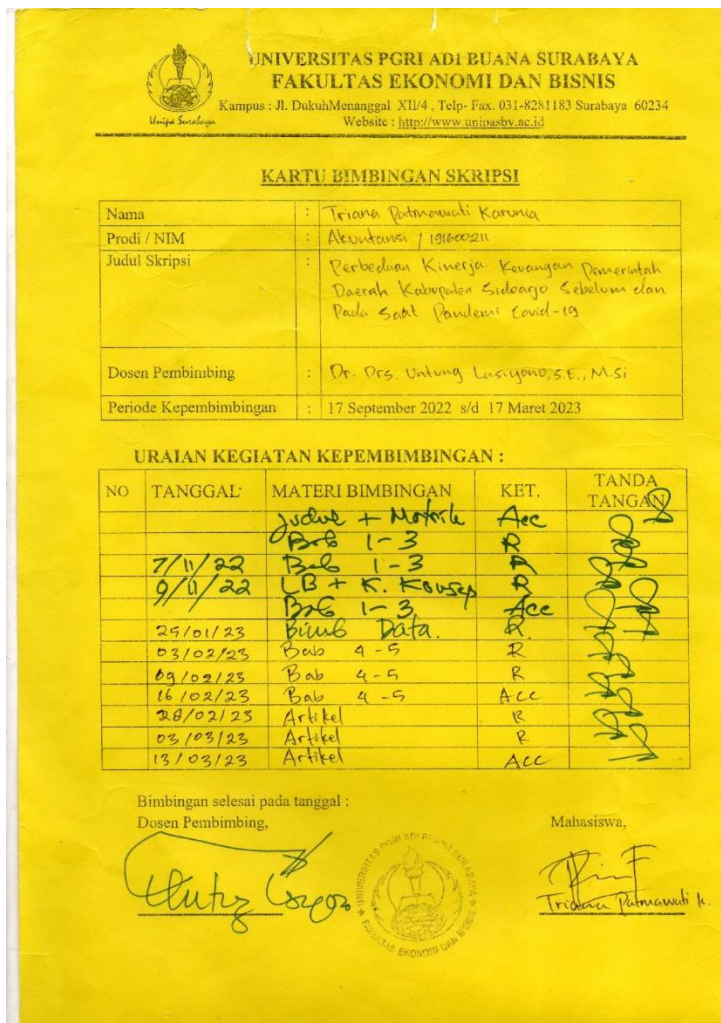 UNIVERSITAS PGRI ADI BUANA SURABAYA
FAKULTAS EKONOMI DAN BISNIS
Kampus : Jl. DukuhMenanggal XII/4 , Telp- Fax. 031-8281183 Surabaya 60234
Website : http://www.unipasby.ac.id
Unipa Surabaya
KARTU BIMBINGAN SKRIPSI
Nama : Triana Patmawati Karunia
Prodi / NIM : Akuntansi / 191600211
Judul Skripsi : Perbedaan Kinerja Keuangan Pemerintah
Daerah Kabupaten Sidoarjo Sebelum dan
Pada Saat Pandemi Covid-19
Dosen Pembimbing : Dr. Drs. Untung Lasiyono, S.E., M.Si
Periode Kepembimbingan : 17 September 2022 s/d 17 Maret 2023
URAIAN KEGIATAN KEPEMBIMBINGAN :
NO TANGGAL MATERI BIMBINGAN KET. TANDA TANGAN
Judul + Matrik Acc
Bab 1-3 R
7/11/22 Bab 1-3 R
9/11/22 LB + K. Konsep R
Bab 1-3 Acc
Bimb Data. R
03/02/23 Bab 4-5 R
09/02/23 Bab 4-5 R
16/02/23 Bab 4-5 ACC
28/02/23 Artikel R
03/03/23 Artikel R
13/03/23 Artikel ACC
Bimbingan selesai pada tanggal :
Dosen Pembimbing, Mahasiswa,
Triana Patmawati K.
UNIVERSITAS PGRI ADI BUANA SURABAYA
FAKULTAS EKONOMI DAN BISNIS